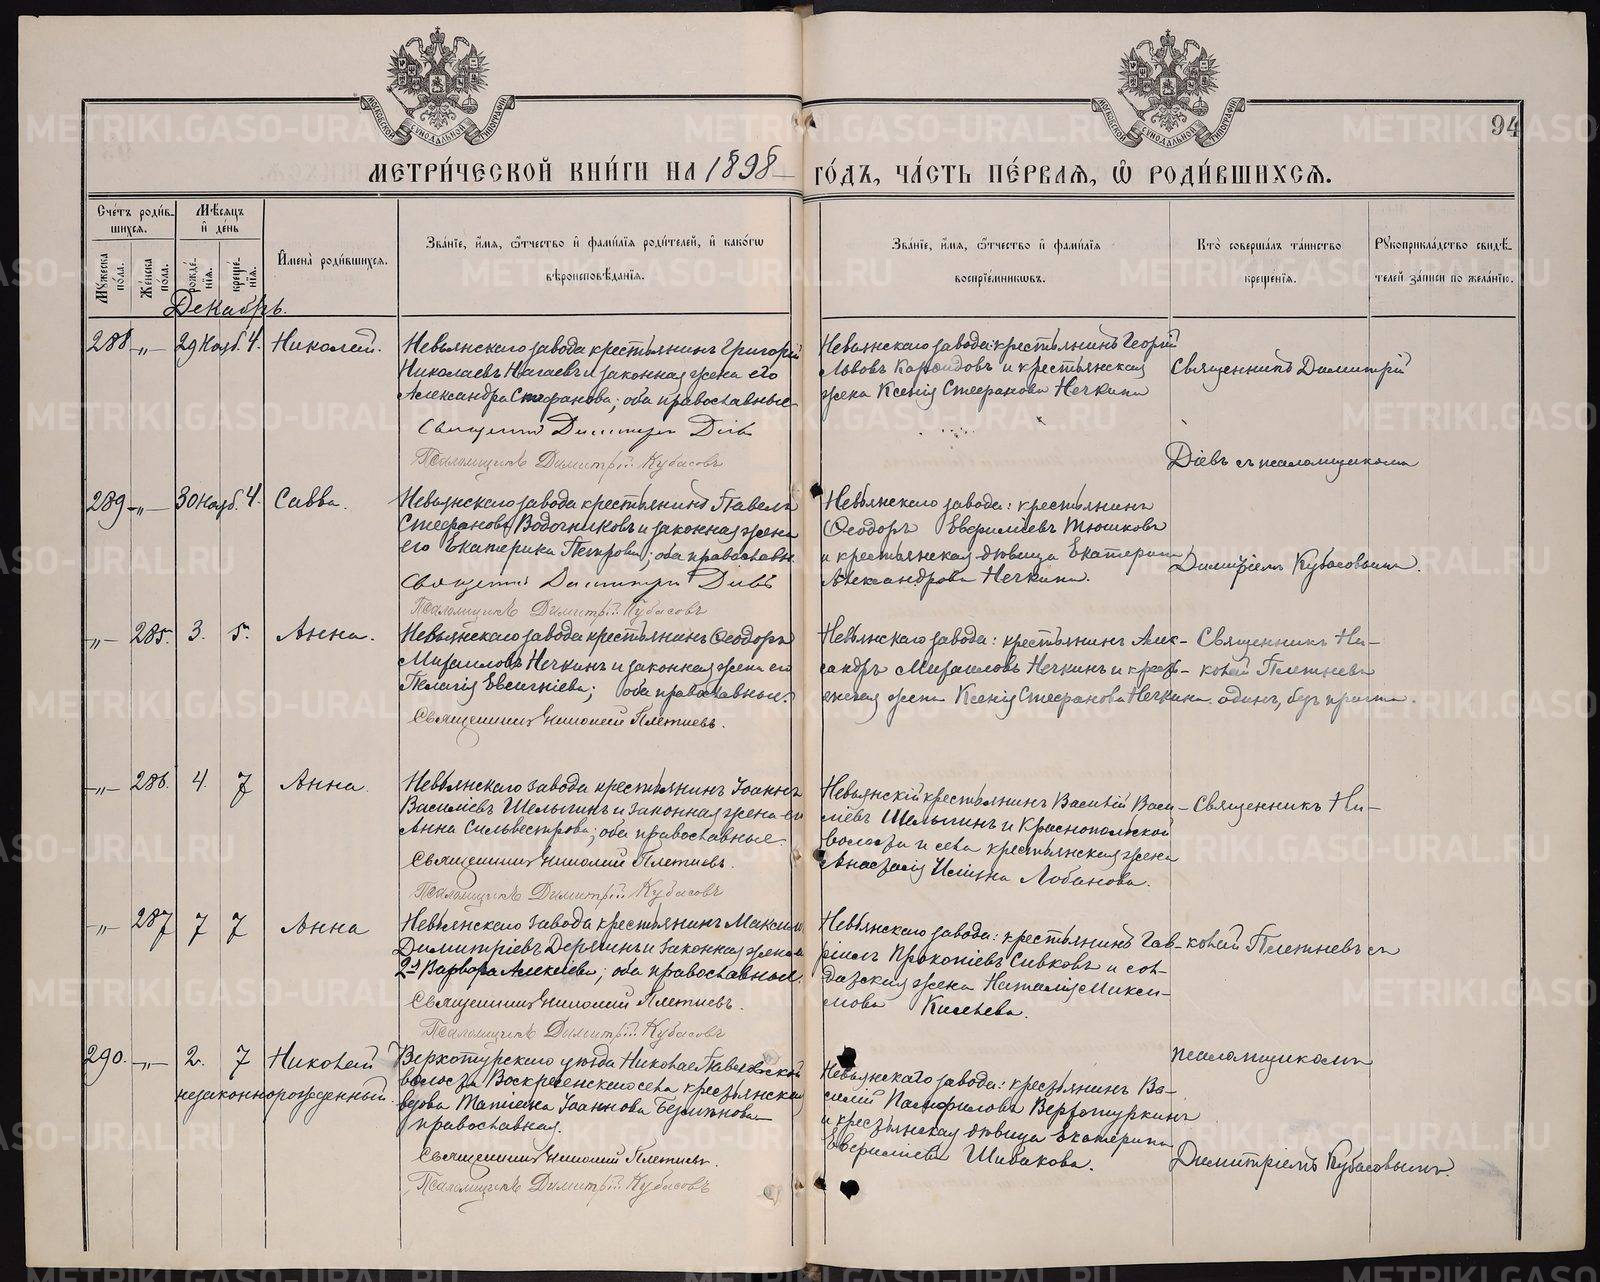 94
МЕТРИ́ЧЕСКОЙ КНИ́ГИ НА 1898 ГО́ДЪ, ЧА́СТЬ ПЕ́РВАЯ, Ѽ РОДИ́ВШИХСЯ.
Сче́тъ роди́вшихся.
Му́жеска по́ла.
Же́нска по́ла.
Мѣ́сяцъ и҆ де́нь
рожде́нїя.
креще́нїя.
И҆мена̀ роди́вшихся.
Зва́нїе, и҆́мя, ѻ҆́тчество и҆ фами́лїя роди́телей, и҆ како́гѡ
вѣроисповѣ́данїя.
Зва́нїе, и҆́мя, ѻ҆́тчество и҆ фами́лїя
воспрїе́мникѡвъ.
Кто̀ соверша́лъ та́инство
креще́нїя.
Рꙋкоприкла́дство свидѣ́телей за́писи по жела́нїю.
Декабрь.
288 -„- 29 Нояб. 4. Николай.
Невьянскаго завода крестьянинъ Григорій
Николаевъ Нагаевъ и законная жена его
Александра Стефанова; оба православные
Священникъ Димитрій Діевъ
Псаломщикъ Димитрій Кубасовъ
Невьянскаго завода: крестьянинъ Георгій
Львовъ и крестьянская
жена Ксенія Стефанова Нечкина
Священникъ Димитрій
Діевъ съ псаломщикомъ
289 -„- 30 Нояб. 4. Савва.
Невьянскаго завода крестьянинъ Павелъ
Стефановъ Водочниковъ и законная жена
его Екатерина Петрова; оба православн.
Священникъ Димитрій Діевъ
Псаломщикъ Димитрій Кубасовъ
Невьянскаго завода: крестьянинъ
Ѳеодоръ Евфиміевъ Тюшковъ
и крестьянская дѣвица Екатерина
Александрова Нечкина.
Димитріемъ Кубасовымъ.
-„- 285. 3. 5. Анна.
Невьянскаго завода крестьянинъ Ѳеодоръ
Михаиловъ Нечкинъ и законная жена его
Пелагія Евсигніева; оба православные.
Священникъ Николай Плетневъ.
Невьянскаго завода: крестьянинъ Алек-
сандръ Михаиловъ Нечкинъ и кресть-
янская жена Ксенія Стефанова Нечкина.
Священникъ Ни-
колай Плетневъ
одинъ, безъ причта.
-„- 286. 4. 7 Анна.
Невьянскаго завода крестьянинъ Іоаннъ
Василіевъ Шелыгинъ и законная жена его
Анна Сильвестрова; оба православные.
Священникъ Николай Плетневъ.
Псаломщикъ Димитрій Кубасовъ
Невьянскій крестьянинъ Василій Васи-
ліевъ Шелыгинъ и Краснопольской
волости и села крестьянская жена
Анастасія Лобанова.
Священникъ Ни-
-„- 287 7 7 Анна
Невьянскаго завода крестьянинъ Максимъ
Димитріевъ Дерягинъ и законная жена его
2я Варвара Алексіева; оба православные.
Священникъ Николай Плетневъ.
Псаломщикъ Димитрій Кубасовъ
Невьянскаго завода: крестьянинъ Гав-
ріилъ Прокопіевъ Сивковъ и сол-
датская жена Наталія Макси-
мова Киселева.
колай Плетневъ съ
псаломщикомъ
290. -„- 2. 7 Николай
незаконнорожденный.
Верхотурскаго уѣзда Николае-Павловской
волости Воскресенскаго села крестьянская
вдова Іоаннова
православная.
Священникъ Николай Плетневъ.
Псаломщикъ Димитрій Кубасовъ
Невьянскаго завода: крестьянинъ Ва-
силій Памфиловъ Верхотуркинъ
и крестьянская дѣвица Екатерина
Евфиміева Шибакова.
Димитріемъ Кубасовымъ.
METRIKI.GASO-URAL.RU